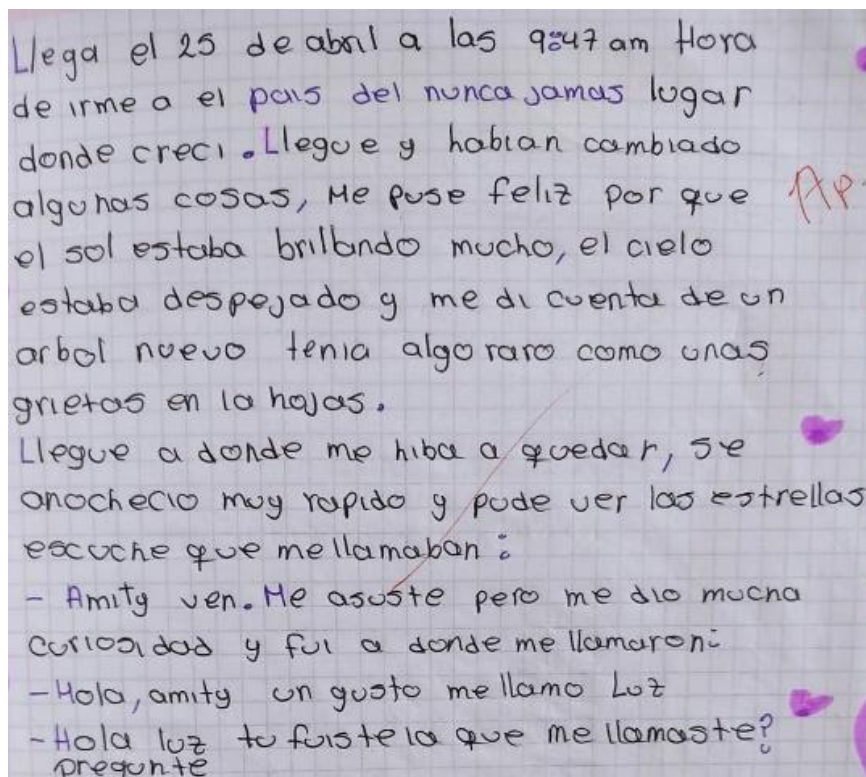 Llega el 25 de abril a las 9:47 am Hora
de irme a el pais del nunca jamas lugar
donde creci. Llegue y habian cambiado
algunas cosas, Me puse feliz por que
el sol estaba brillando mucho, el cielo
estaba despejado y me di cuenta de un
arbol nuevo tenia algo raro como unas
grietas en la hojas.
Llegue a donde me hiba a quedar, se
anochecio muy rapido y pude ver las estrellas
escuche que me llamaban:
- Amity ven. Me asuste pero me dio mucha
curiosidad y fui a donde me llamaron:
- Hola, amity un gusto me llamo Luz
- Hola luz tu fuiste la que me llamaste?
pregunte